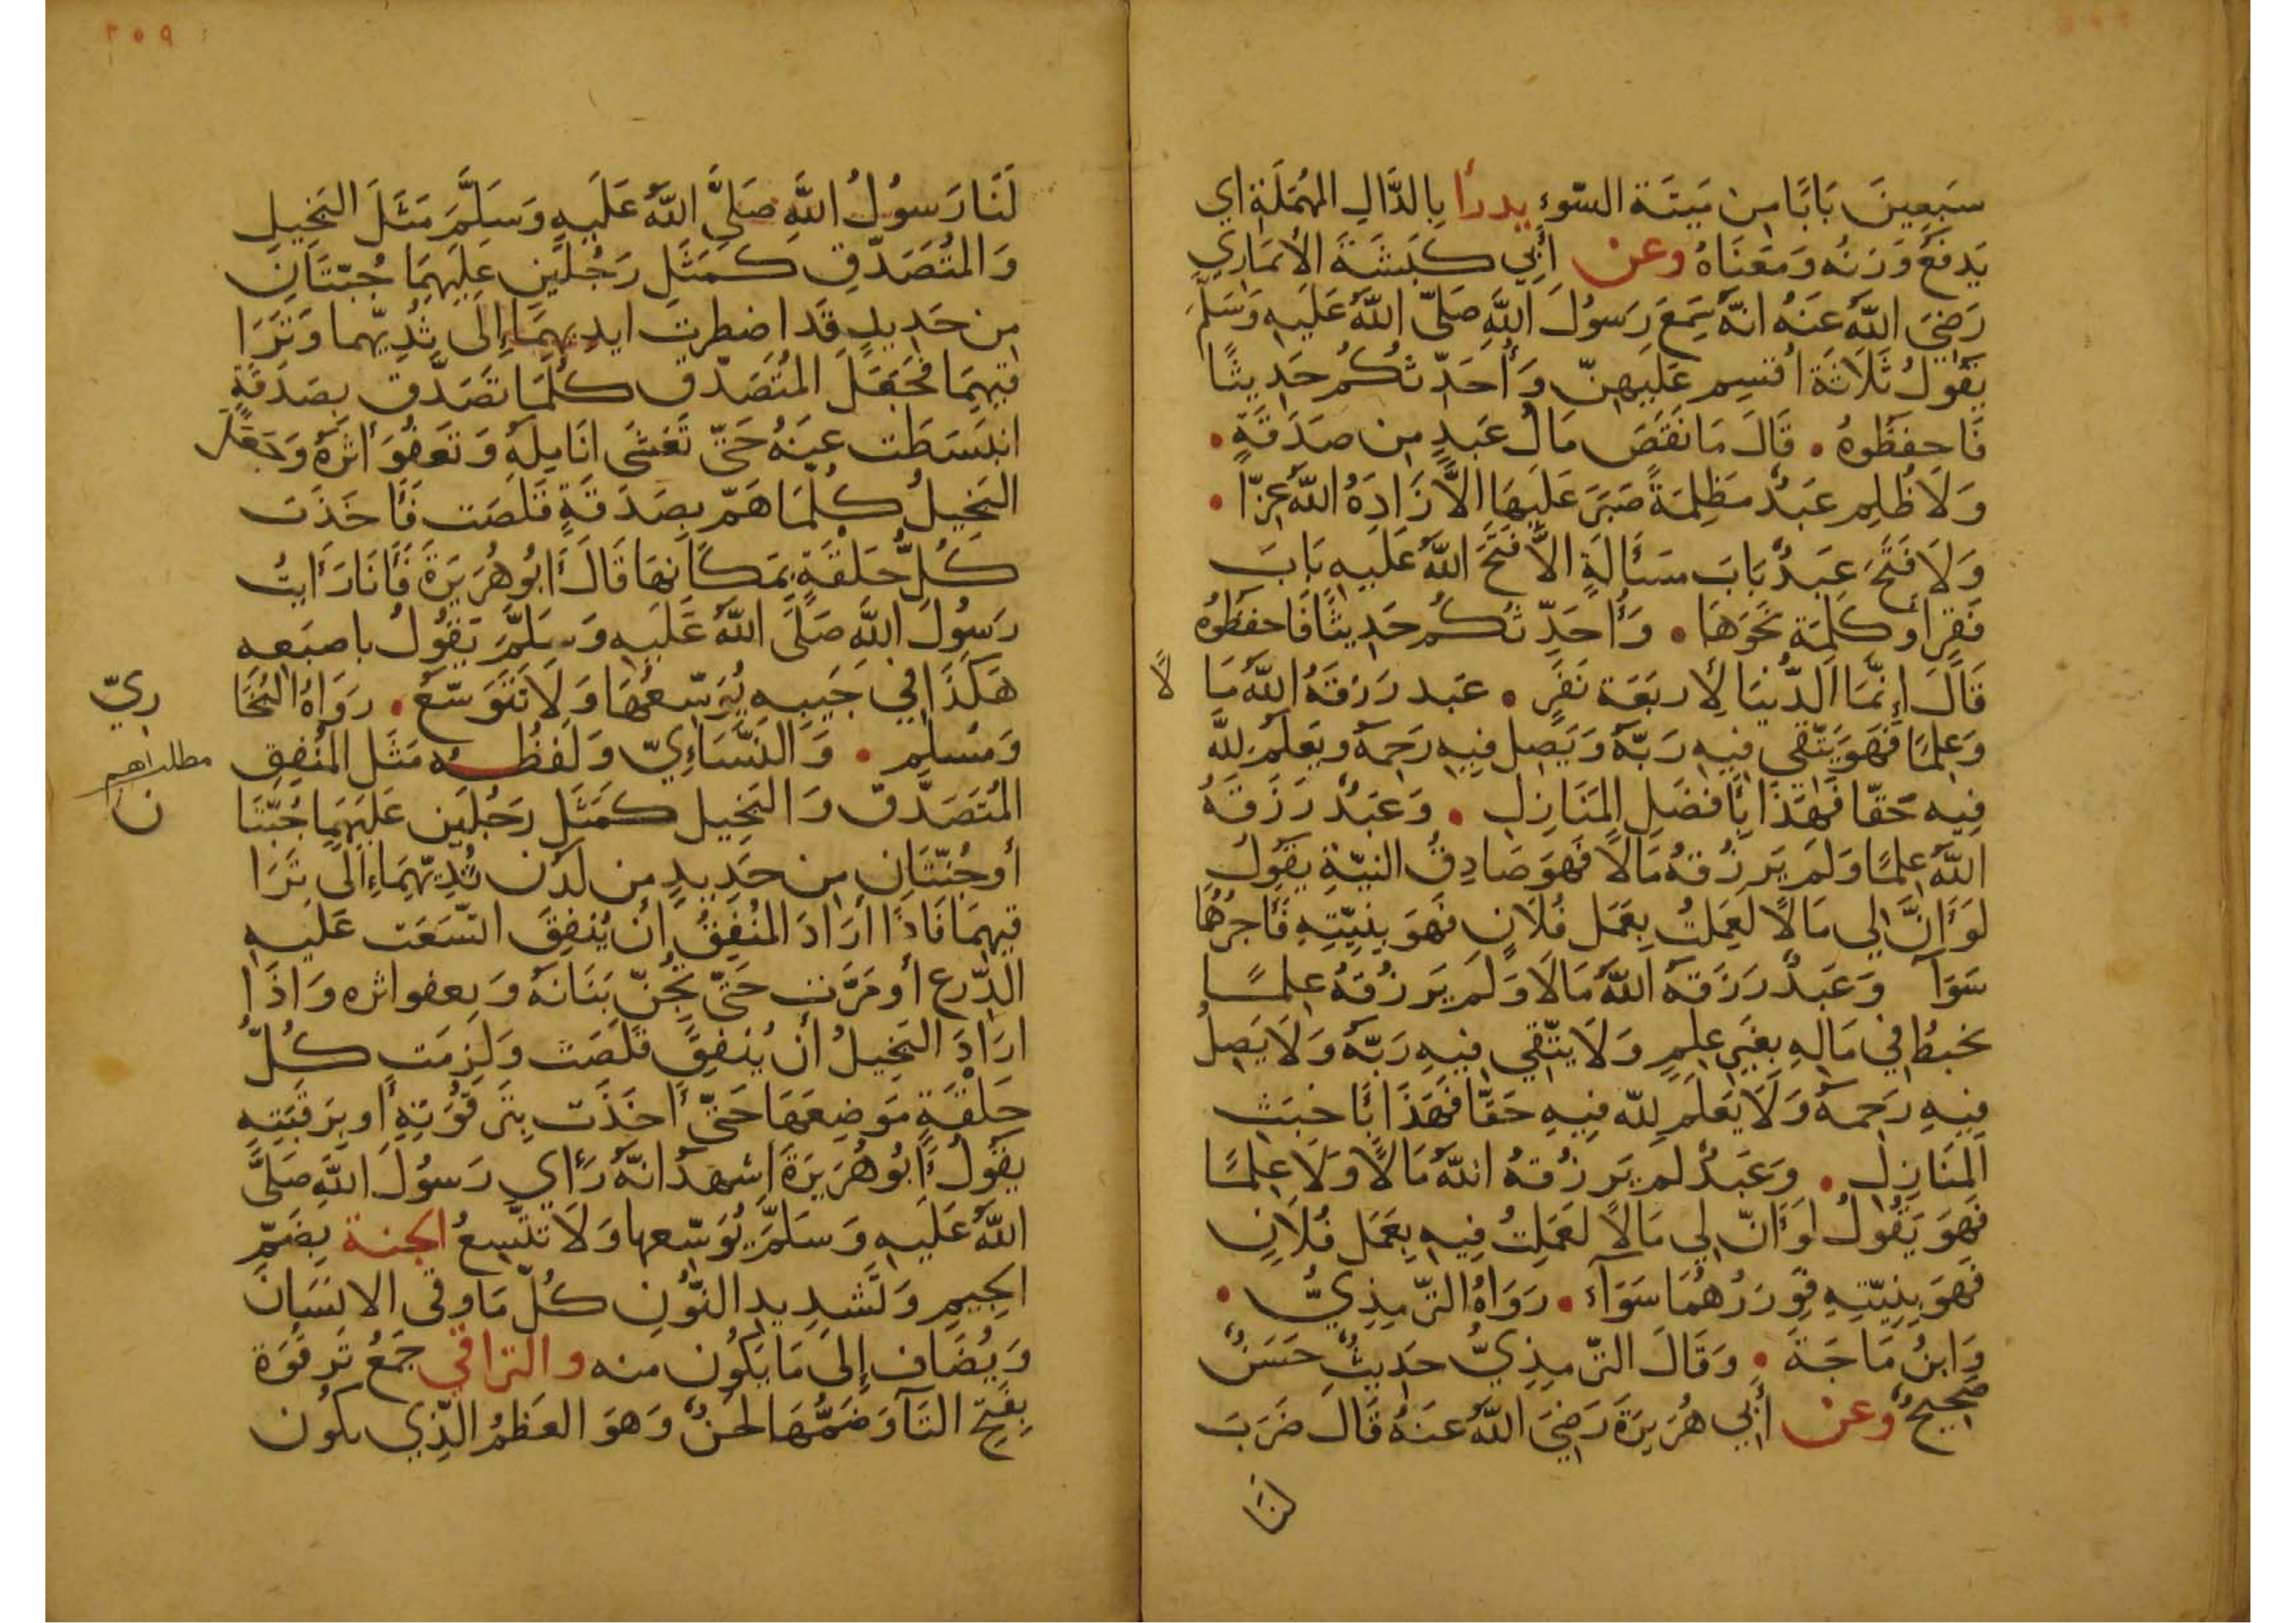 سَبعِينَ بَابًا مِن مَيتَة السّوءِ يدرأ بِالدَّالِ المُهمَلَةِ اي
يَدفَعُ وَزنُه وَمَعنَاهُ وعن أَبِي كَبشَةَ الأَنمَارِي
رَضِيَ اللَّهُ عَنهُ انّهُ سَمِعَ رَسُولَ اللَّهِ صَلَّى اللَّهُ عَلَيهِ وَسَلَّمَ
يَقُولُ ثَلَاثَة أُقسِم عَلَيهِنّ وَأُحَدّثُكُم حَدِيثًا
فَاحفَظُوهُ . قَالَ مَا نَقَصَ مَالُ عَبدٍ مِن صَدَقَةٍ .
وَلَا ظُلِم عَبدٌ مَظلِمَةً صَبَرَ عَلَيهَا الاَّ زَادَهُ اللَّهُ عِزًّا .
وَلَا فَتَحَ عَبدٌ بَابَ مَسأَلَةٍ الاَّ فَتَحَ اللَّهُ عَلَيهِ بَابَ
فَقرٍ أَو كَلِمَة نَحوَهَا . وَأُحَدِّثُكُم حَدِيثًا فَاحفَظُوهُ
قَالَ إِنَّمَا الدُّنيَا لِأَربَعَة نَفَرٍ . عَبد رَزَقَهُ اللَّهُ مَا لًا
وَعِلمًا فَهُوَ يَتّقي فِيهِ رَبّهُ وَيَصِل فِيهِ رَحِمهُ وَيَعلَمُ لِلّه
فِيهِ حَقّا فَهَذَا بِأَفضَلِ المَنَازِلِ . وَعَبدٌ رَزَقَهُ
اللَّهُ عِلمًا وَلَم يَرزُقهُ مَالًا فَهُوَ صَادِقُ النيّةِ يَقُولُ
لَو أَنَّ لِي مَالًا لَعَمِلتُ بِعَمَل فُلَانٍ فَهُوَ بِنِيّتِهِ فَأَجرُهُمَا
سَوَآ وَعَبدٌ رَزَقَهُ اللَّهُ مَالًا وَلَم يَرزُقهُ عِلمًا
يخبطُ في مَالِهِ بِغَيرِ عِلمٍ وَلَا يَتّقي فِيهِ رَبّهُ وَلَا يَصِلُ
فِيهِ رَحِمهُ وَلَا يَعلَم لِلّه فِيهِ حَقّا فَهَذَا بِأَخبَثِ
المَنَازِلِ . وَعَبدٌ لم يَرزُقهُ اللَّهُ مَالًا وَلَا عِلمًا
فَهوَ يَقُولُ لَو أَنّ لِي مَالًا لَعَمِلتُ فِيهِ بِعَمَل فُلَانٍ
فَهوَ بِنِيّتِهِ فَوِزرُهُمَا سَوَآء . رَوَاهُ التّرمِذِيُّ .
وَابنُ مَاجَة . وَقَالَ التّرمِذِيُّ حَدِيثٌ حَسَنٌ
صَحِيحٌ وعن أَبِي هُرَيرَةَ رَضِيَ اللَّهُ عَنهُ قَالَ ضَرَبَ
لنَا
٢٥٩
لَنَا رَسُولُ اللَّهِ صَلَّى اللَّهُ عَلَيهِ وَسَلَّمَ مَثَلَ البَخِيلِ
وَالمُتَصَدّقِ كَمَثَلِ رَجُلَينِ عَلَيهِمَا جُبّتَانِ
مِن حَدِيدٍ قَد اضطرت ايدِيهِمَا إِلَى ثُدِيّهما وَتَرَا
قِيهِمَا فَجَعَلَ المُتَصَدّق كُلَّمَا تَصَدَّقَ بِصَدَقَةٍ
انبَسَطَت عَنهُ حَتَّى تَغشَى انَامِلَهُ وَتَعفُوَ أَثرَهُ وَجَعَلَ
البَخِيلُ كُلَّمَا هَمّ بِصَدَقَةٍ قَلَصَت فَأَخَذَت
كُلُّ حَلقَةٍ بِمَكَانِهَا قَالَ أَبُو هُرَيرَةَ فَأَنَا رَأَيتُ
رَسُولَ اللَّهِ صَلَّى اللَّهُ عَلَيهِ وَسَلَّمَ يَقُولُ باصبَعِهِ
هَكَذَا فِي جَيبِهِ يُوَسّعُهَا وَلَا تَتَوَسّعُ . رَوَاهُ البُخَا
رِيّ
وَمُسلِم . وَالنَّسَاءِيّ وَلَفظُه مَثَل المُنفِقِ
المُتَصَدّق وَالبَخِيل كَمَثَلِ رَجُلَين عَلَيهِمَا جُبّتَا
ن
أَو جُنّتَانِ مِن حَدِيدٍ مِن لَدُن ثُدِيّهِمَا إِلَى تَرَا
قِيهِمَا فَاذَا أَرَادَ المُنفِقُ أَن يُنفِقَ اتّسَعَت عَلَيهِ
الدِّرع أَو مَرَّت حَتّى تُجِنّ بَنَانَهُ وَيعفو اثره وَاذَا
ارَادَ البَخِيلُ أَن يُنفِقَ قَلَصَت وَلَزِمَت كُلّ
حَلقَةٍ مَوضِعَهَا حَتّى أَخَذَت بِتَرقُوَتِهِ أَو بِرَقَبَتِهِ
يَقُولُ أَبُو هُرَيرَةَ اشهَدُ انّهُ رَأَي رَسُولَ اللَّهِ صَلَّى
اللَّهُ عَلَيهِ وَسَلَّمَ يُوَسّعها وَلَا تتّسِعُ الجنة بِضَمِّ
الجِيمِ وَتَشدِيدِ النُّونِ كُلّ مَا وقى الانسَانَ
وَيُضَاف إِلَى مَا يَكُون منه والتراقي جَمعُ تَرقُوَة
بِفَتحِ التَآ وَضَمُّهَا لَحنٌ وَهوَ العَظمُ الّذِي يكون